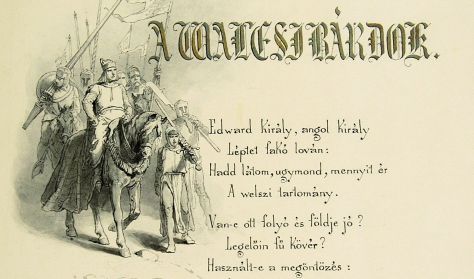 A WALESI BÁRDOK.
Edward király, angol király
Léptet fakó lován:
Hadd látom, ugymond, mennyit ér
A welszi tartomány.
Van-e ott folyó és földje jó?
Legelőin fű kövér?
Használt-e a megöntözés: